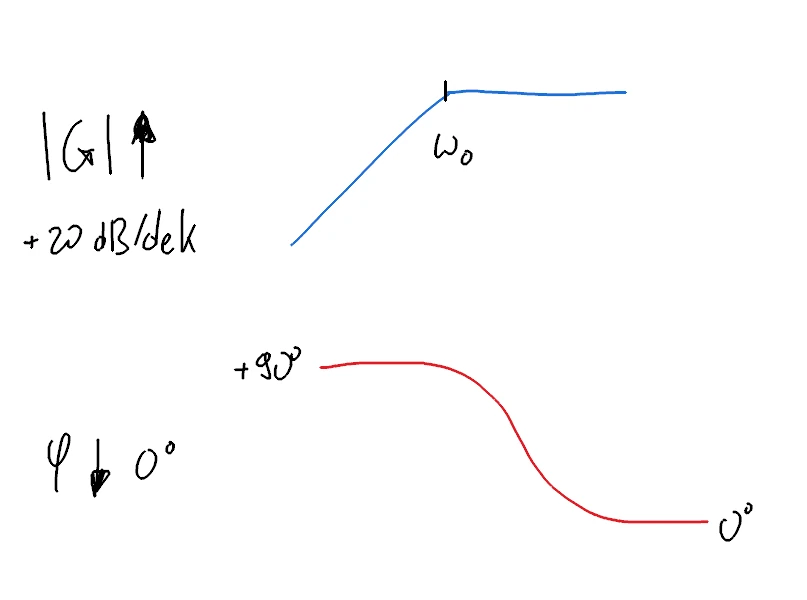 |G| ↑
ω₀
+20 dB/dek
+90°
φ ↓ 0°
0°